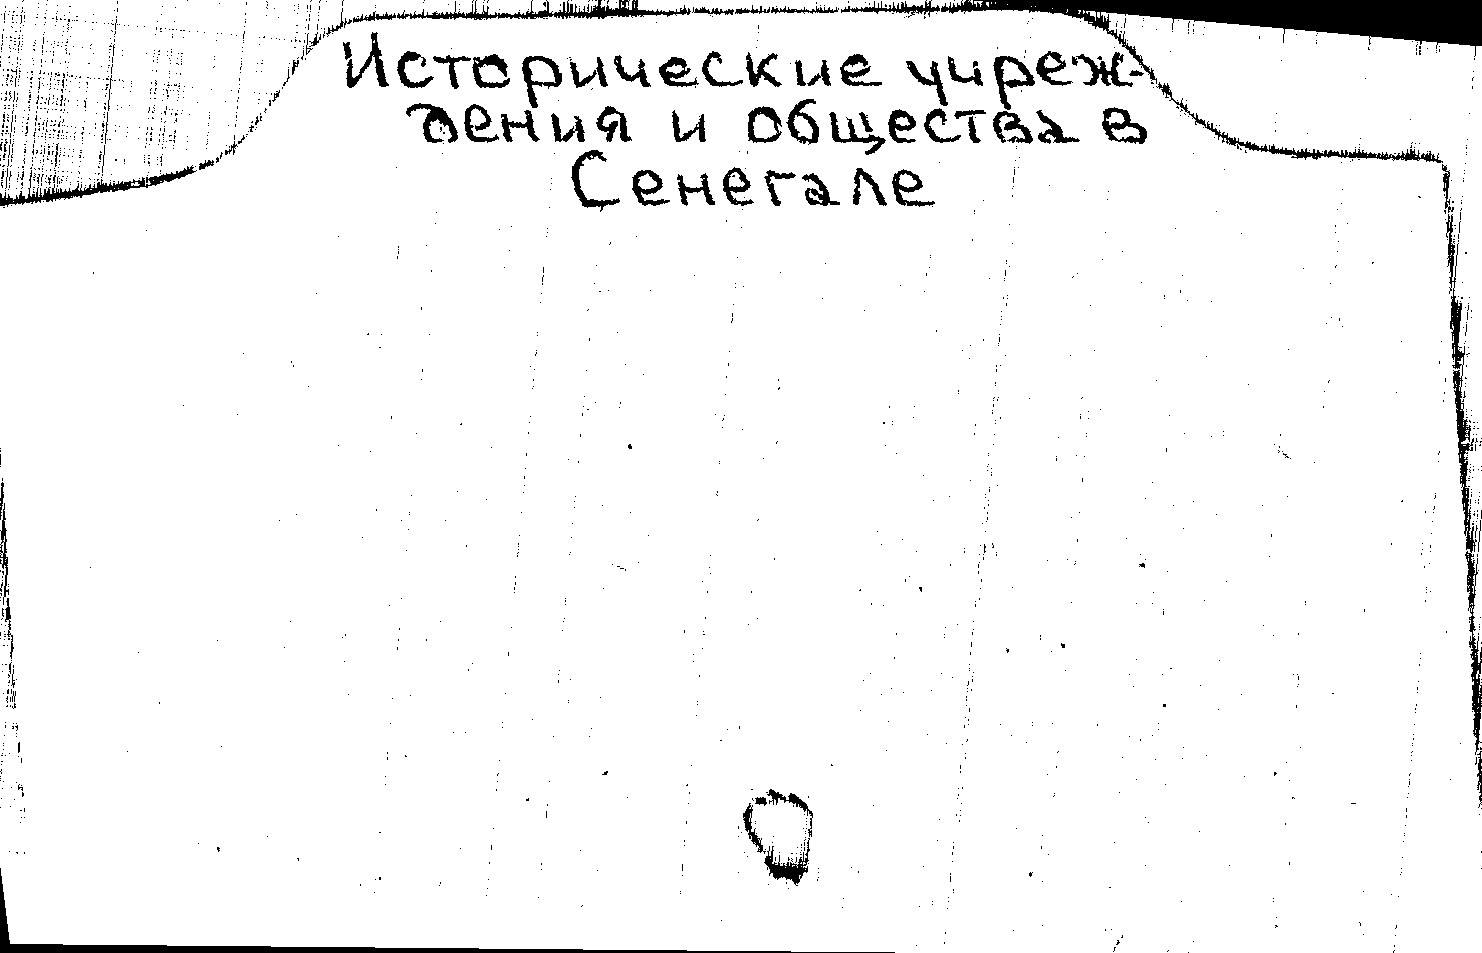 Исторические учреж-
дения и общества в
Сенегале